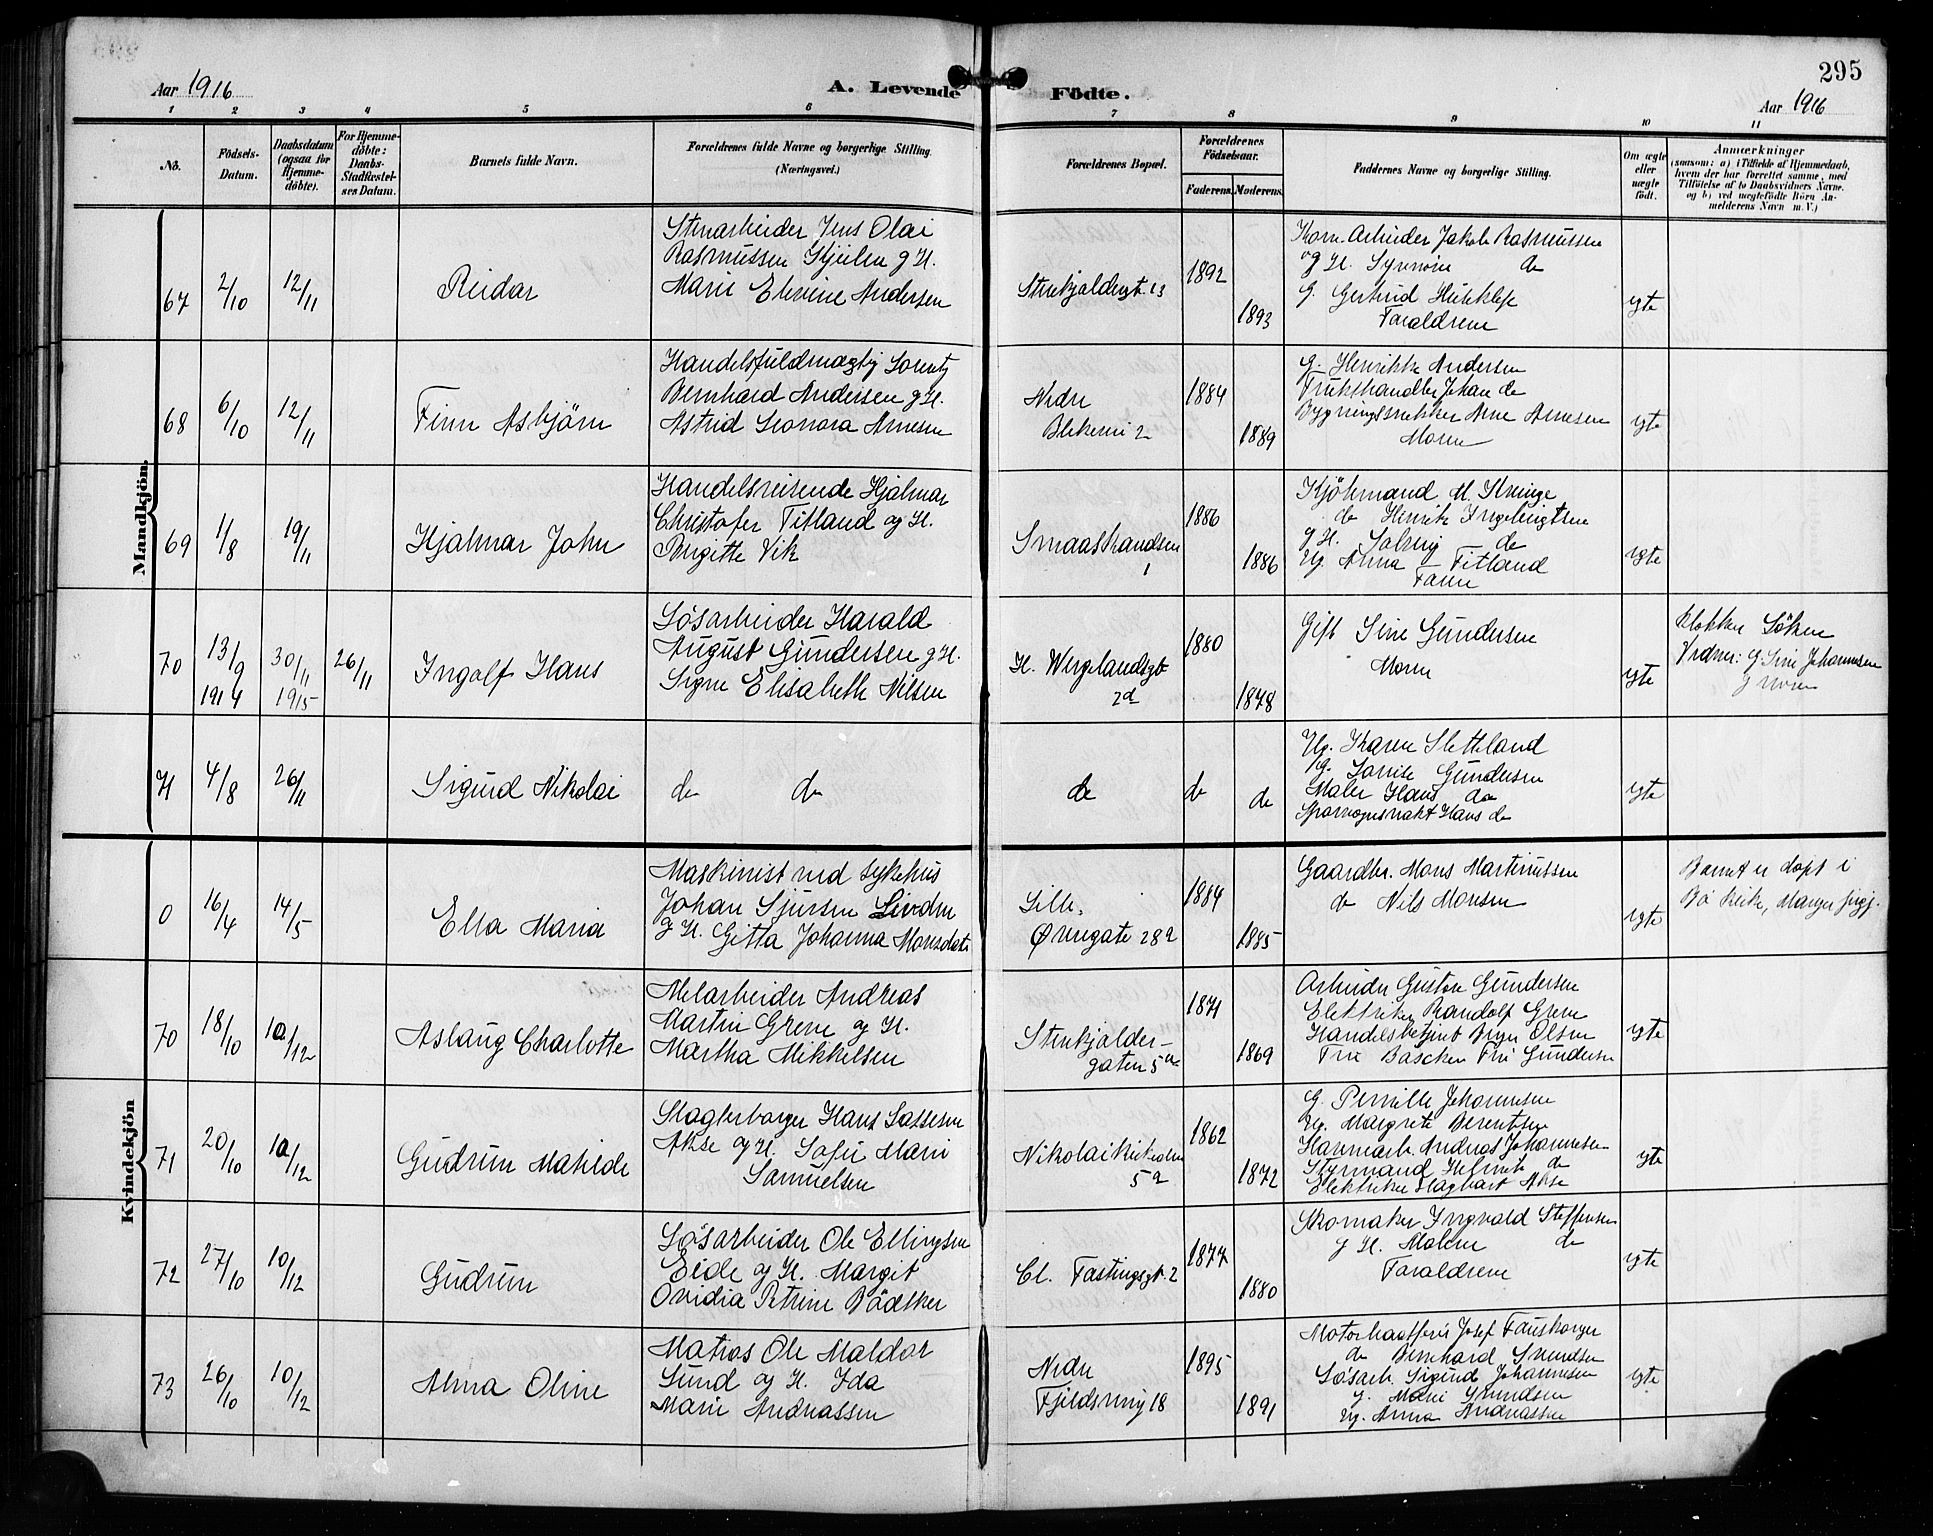 295
Aar 1916
A. Levende Födte.
Aar 1916
1 2 3 4 5 6 7 8 9 10 11
No.
Födsels-
Datum.
Daabsdatum
(ogsaa for
Hjemme-
döbte).
For Hjemme-
döbte:
Daabs-
Stadfæstel-
ses Datum.
Barnets fulde Navn.
Forældrenes fulde Navne og borgerlige Stilling.
(Næringsvei.)
Forældrenes Bopæl.
Forældrenes
Födselsaar.
Faderens. Moderens.
Faddernes Navne og borgerlige Stilling.
Om ægte
eller
uægte
født.
Anmærkninger
(saasom: a) i Tilfælde af Hjemmedaab,
hvem der har forrettet samme, med
Tilföielse af to Daabsvidners Navne.
og b) ved uægtefödte Börn An-
melderens Navn m. V.)
Mandkjön.
67 2/10 12/11
Reidar
Stenarbeider Jens Olai
Rasmussen g H.
Marie Elevine Andersen
Stenkjeldergt. 23
1892
1893
Arbeider Jakob Rasmussen
og H. Synnöve do
G. Gertrud
Foraldrene
ægte
68 6/10 12/11
Finn Asbjörn
Handelsfuldmægtig Lorentz
Bernhard Andersen g H.
Astrid Leonora Arnesen
Nedre
Blekevei 2
1884
1889
G. Henrikke Andersen
Frukthandler Johan do
Bygningssnekker Arne Arnesen
Moren
ægte
69 1/8 19/11
Hjalmar John
Handelsreisende Hjalmar
Christofer Titland og H.
Birgitte Vik
Smaastrandsen
1
1886
1886
Kjöbmand M. Kringe
do Henrik Ingebrigtsen
g H. Solveig do
Ug. Alma Titland
Faren
ægte
70 13/9 30/11 26/11
1914 1915
Ingolf Hans
Lösarbeider Harald
August Gundersen g H.
Signe Elisabeth Nilsen
H. Wergelandsgt
2d
1880
1878
Gift Sine Gundersen
Moren
ægte
Klokker Söken
Vidner: G Sine Johannesen
g Moren
71 4/8 26/11
Sigurd Nikolai
do do
do
do
do
Ug. Karen Sletteland
G. Lovise Gundersen
Maler Hans do
Sporvognsvakt Hans do
ægte
Kvindekjön
0 16/4 14/5
Ella Maria
Maskinist ved sykehus
Johan Sjursen Linden
g H. Gitta Johanna Monsdatr
Lille
Övregate 28a
1884
1885
Gaardbr. Mons Martinussen
do Nils Monsen
ægte
Barnet er döpt i
Bö kirke, Manger prgj.
70 18/10 10/12
Aslaug Charlotte
Melarbeider Andreas
Martin Greve og H.
Martha Mikkelsen
Stenkjelder-
gaten 5
1871
1869
Arbeider Gustav Gundersen
Elektriker Randolf Greve
Handelsbetjent Birger Olsen
Frk Gundersen
ægte
71 20/10 10/12
Gudrun Matilde
Slagterborger Hans Lassesen
Akse og H. Sofie Marie
Samuelsen
Nikolaikirkealm
5a
1862
1872
G. Pernille Johannesen
Ug. Margrete Berentsen
Havnearb. Andreas Johannesen
Styrmand Helmik do
Elektriker Hagbart Akse
ægte
72 27/10 10/12
Gudrun
Lösarbeider Ole Ellingsen
Eide og H. Margit
Ovidia Petrine Bödtker
Cl. Fastingsgt. 2
1877
1880
Skomaker Ingvald Steffensen
g H. Malene do
Foraldrene
ægte
73 26/10 10/12
Alma Oline
Matros Ole Maldor
Sund og H. Ida
Marie Andreassen
Nedre
Fjeldsmug 18
1895
1891
Motorbaatförer Josef Fauskanger
do Bernhard
Lösarb. Sigurd Johannesen
G. Marie Knudsen
Ug. Anna Andreassen
ægte